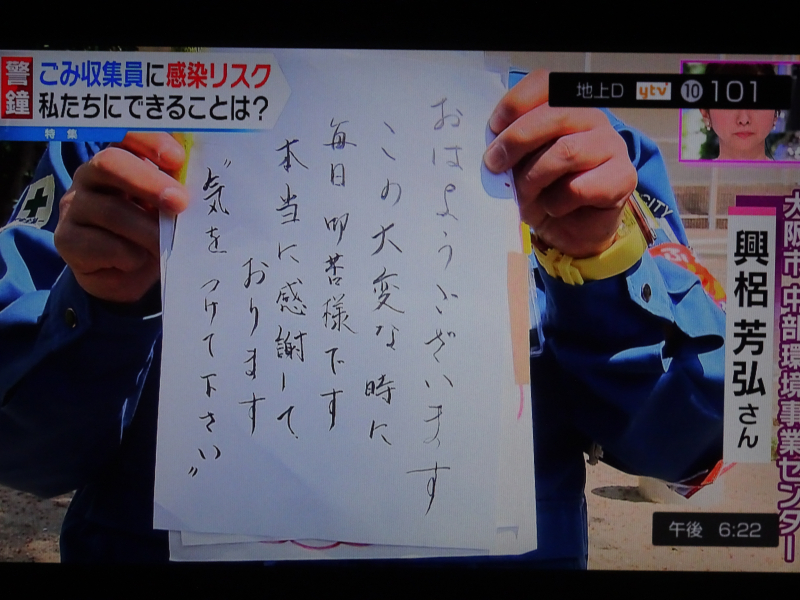 警鐘
ごみ収集員に感染リスク
私たちにできることは?
特集
地上D ytv 10 101
おはようございます
この大変な時に
毎日御苦様です
本当に感謝して
おります
"気をつけて下さい"
大阪市中部環境事業センター
興梠 芳弘さん
CITY
午後 6:22